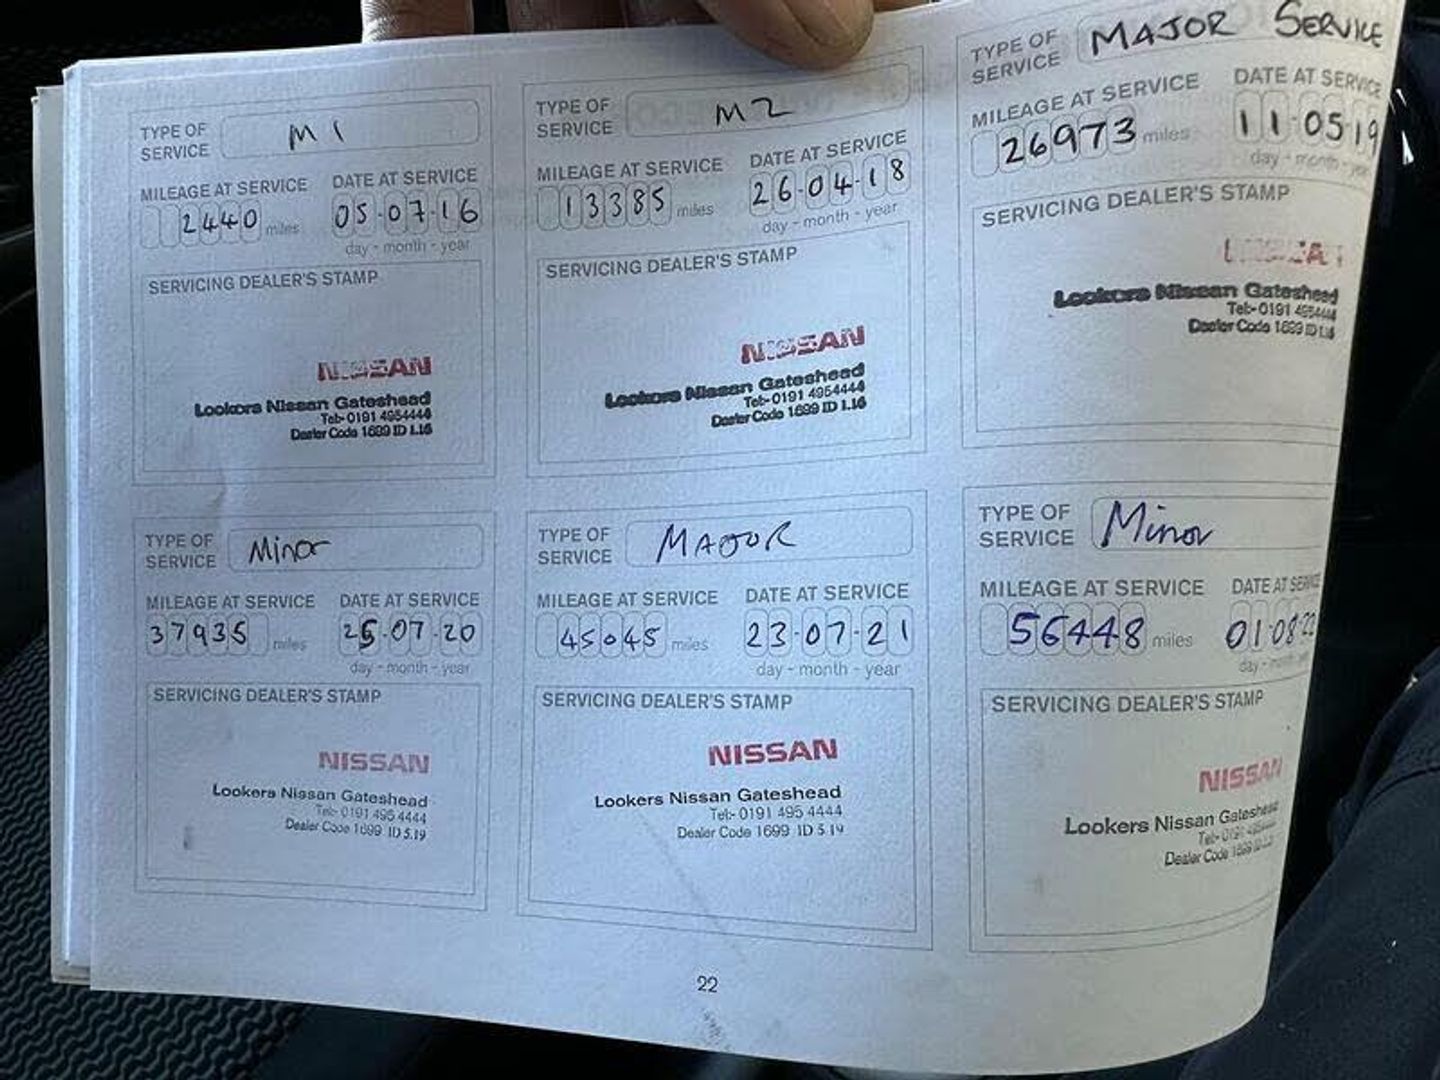 TYPE OF SERVICE M1
MILEAGE AT SERVICE DATE AT SERVICE
2440 miles 05-07-16
day - month - year
SERVICING DEALER'S STAMP
NISSAN
Lookers Nissan Gateshead
Tel:- 0191 4954444
Dealer Code 1699 ID 1.16
TYPE OF SERVICE M2
MILEAGE AT SERVICE DATE AT SERVICE
13385 miles 26-04-18
day - month - year
SERVICING DEALER'S STAMP
NISSAN
Lookers Nissan Gateshead
Tel:- 0191 4954444
Dealer Code 1699 ID 1.16
TYPE OF SERVICE MAJOR SERVICE
MILEAGE AT SERVICE DATE AT SERVICE
26973 miles 11-05-19
day - month - year
SERVICING DEALER'S STAMP
NISSAN
Lookers Nissan Gateshead
Tel:- 0191 4954444
Dealer Code 1699 ID 1.16
TYPE OF SERVICE Minor
MILEAGE AT SERVICE DATE AT SERVICE
37935 miles 25-07-20
day - month - year
SERVICING DEALER'S STAMP
NISSAN
Lookers Nissan Gateshead
Tel:- 0191 495 4444
Dealer Code 1699 ID 5.19
TYPE OF SERVICE MAJOR
MILEAGE AT SERVICE DATE AT SERVICE
45045 miles 23-07-21
day - month - year
SERVICING DEALER'S STAMP
NISSAN
Lookers Nissan Gateshead
Tel:- 0191 495 4444
Dealer Code 1699 ID 5.19
TYPE OF SERVICE Minor
MILEAGE AT SERVICE DATE AT SERVICE
56448 miles 01-08-22
day - month
SERVICING DEALER'S STAMP
NISSAN
Lookers Nissan Gateshead
Tel:- 0191
Dealer Code 1699 ID
22